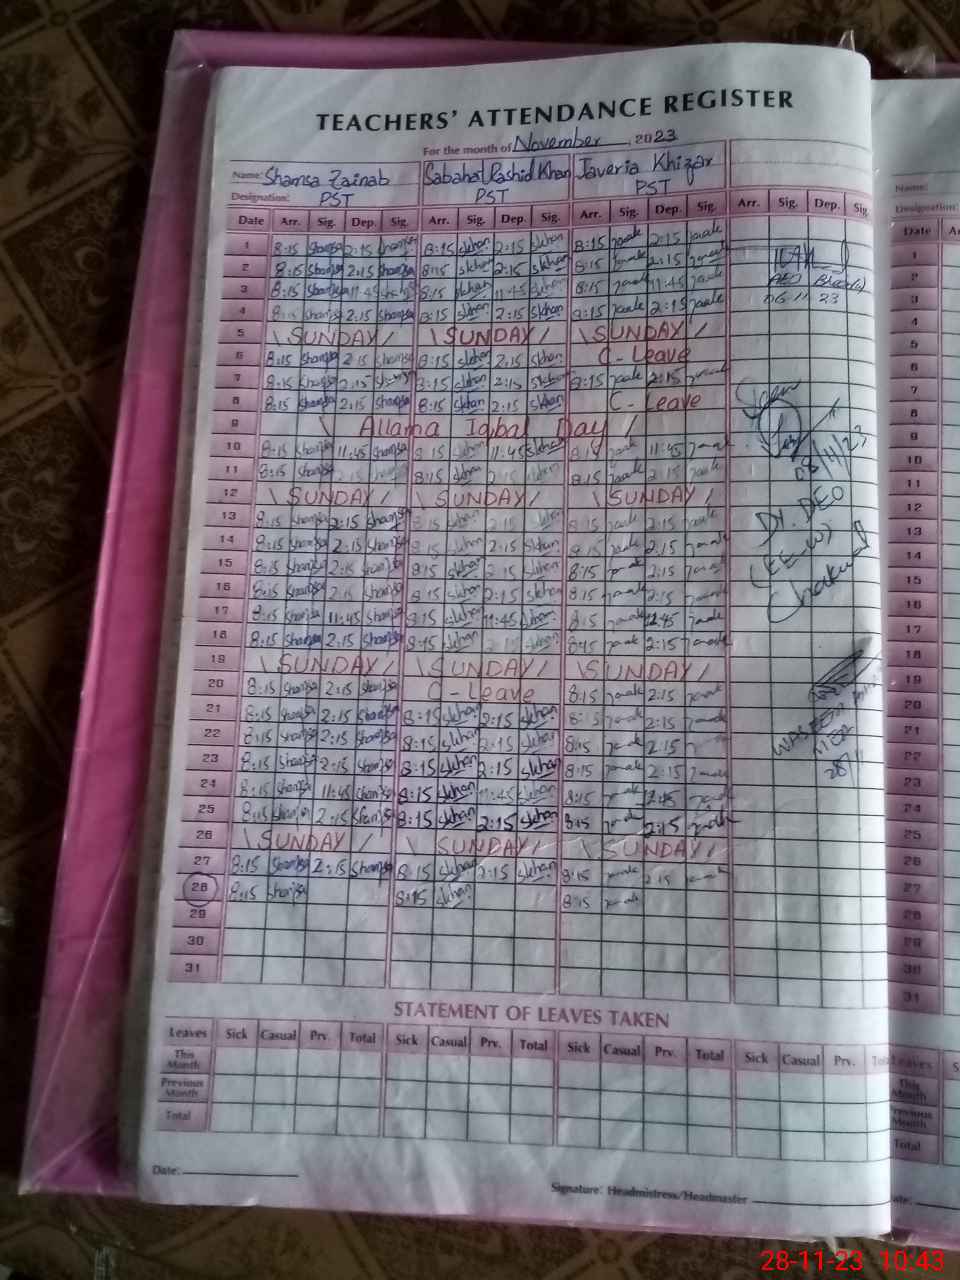 TEACHERS' ATTENDANCE REGISTER
For the month of November, 2023
Name: Shamsa Zainab Sabahat Rashid Khan Javeria Khizar
Designation: PST PST PST
Date Arr. Sig. Dep. Sig. Arr. Sig. Dep. Sig. Arr. Sig. Dep. Sig. Arr. Sig. Dep. Sig.
1 8:15 Shamsa 2:15 Shamsa 8:15 skhan 2:15 skhan 8:15 2:15
2 8:15 Shamsa 2:15 Shamsa 8:15 skhan 2:15 skhan 8:15 2:15
3 8:15 Shamsa 11:45 Shamsa 8:15 skhan 11:45 skhan 8:15 11:45
4 8:15 Shamsa 2:15 Shamsa 8:15 skhan 2:15 skhan 8:15 2:15
06-11-23
5 \ SUNDAY / \ SUNDAY / \ SUNDAY /
6 8:15 Shamsa 2:15 Shamsa 8:15 skhan 2:15 skhan C-Leave
7 8:15 Shamsa 2:15 Shamsa 8:15 skhan 2:15 skhan 8:15 2:15
8 8:15 Shamsa 2:15 Shamsa 8:15 skhan 2:15 skhan C-Leave
9 \ Allama Iqbal Day /
10 8:15 Shamsa 11:45 Shamsa 8:15 skhan 11:45 skhan 8:15 11:45
11 8:15 Shamsa 2:15 8:15 skhan 2:15 skhan 8:15 2:15
08/11/23
12 \ SUNDAY / \ SUNDAY / \ SUNDAY /
13 8:15 Shamsa 2:15 Shamsa 8:15 skhan 2:15 skhan 8:15 2:15
Dy. DEO
14 8:15 Shamsa 2:15 Shamsa 8:15 skhan 2:15 skhan 8:15 2:15
15 8:15 Shamsa 2:15 Shamsa 8:15 skhan 2:15 skhan 8:15 2:15
(EE-W)
16 8:15 Shamsa 2:15 Shamsa 8:15 skhan 2:15 skhan 8:15 2:15
Chakwal
17 8:15 Shamsa 11:45 Shamsa 8:15 skhan 11:45 skhan 8:15 11:45
18 8:15 Shamsa 2:15 Shamsa 8:45 skhan 2:15 skhan 8:45 2:15
19 \ SUNDAY / \ SUNDAY / \ SUNDAY /
20 8:15 Shamsa 2:15 Shamsa C-Leave 8:15 2:15
21 8:15 Shamsa 2:15 Shamsa 8:15 skhan 2:15 skhan 8:15 2:15
WASEEM
22 8:15 Shamsa 2:15 Shamsa 8:15 skhan 2:15 skhan 8:15 2:15
MEA
23 8:15 Shamsa 2:15 Shamsa 8:15 skhan 2:15 skhan 8:15 2:15
28/11
24 8:15 Shamsa 11:45 Shamsa 8:15 skhan 11:45 skhan 8:15 12:45
25 8:15 Shamsa 2:15 Shamsa 8:15 skhan 2:15 skhan 8:45 2:15
26 \ SUNDAY / \ SUNDAY / \ SUNDAY /
27 8:15 Shamsa 2:15 Shamsa 8:15 skhan 2:15 skhan 8:15 2:15
28 8:15 Shamsa 8:15 skhan 8:15
29
30
31
STATEMENT OF LEAVES TAKEN
Leaves Sick Casual Prv. Total Sick Casual Prv. Total Sick Casual Prv. Total Sick Casual Prv.
This Month
Previous Month
Total
Date:
Signature: Headmistress/Headmaster
Name:
Designation:
Date
1
2
3
4
5
6
7
8
9
10
11
12
13
14
15
16
17
18
19
20
21
22
23
24
25
26
27
28
29
30
31
Leaves
This Month
Previous Month
Total
28-11-23 10:43